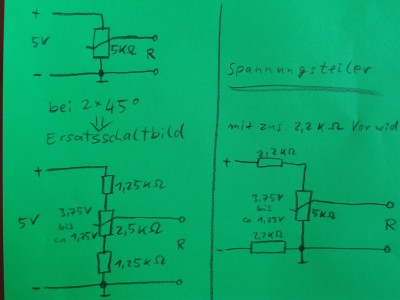 +
5V
5KΩ
R
-
bei 2×45°
Ersatzschaltbild
+
1,25KΩ
5V
3.75V
bis
ca 1,25V
2,5KΩ
R
1,25KΩ
-
Spannungsteiler
mit zus. 2,2KΩ Vorwid
2,2KΩ
+
3.75V
bis
ca 1,25V
5KΩ
R
2,2KΩ
-